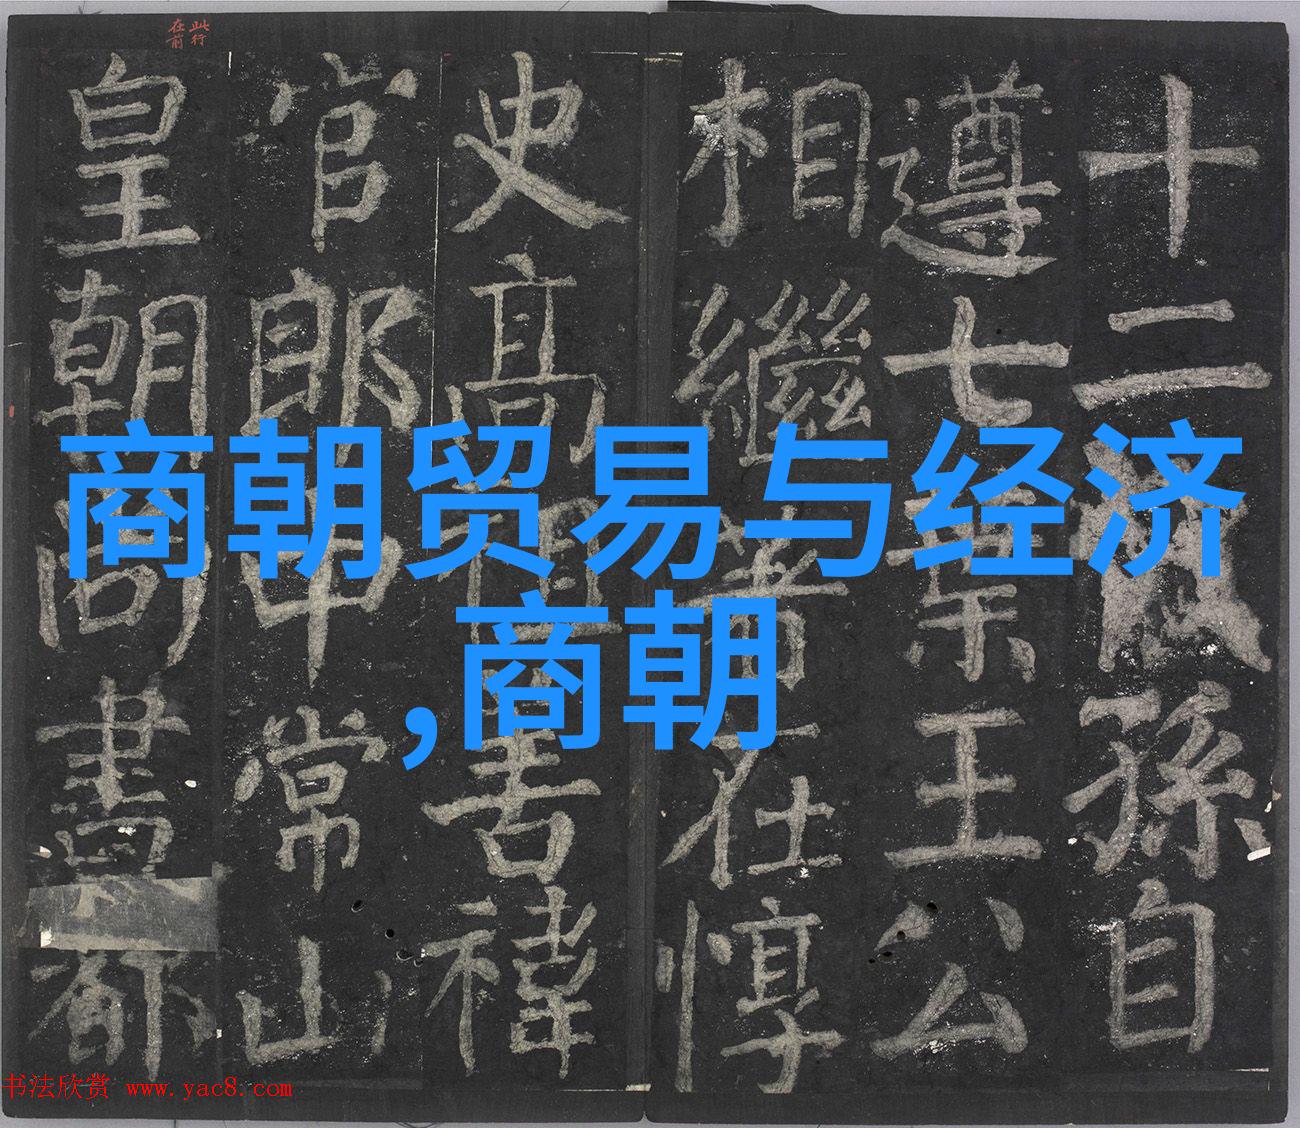 此行在前
十二孫自
遵七葉王公
相繼著在惇
史高祖禕
官郎中常山
皇朝尚書都
商朝贸易与经济
,商朝
书法欣赏 www.yac8.com